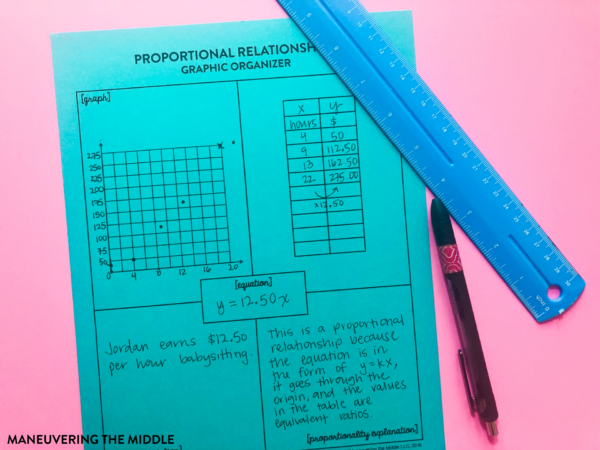 PROPORTIONAL RELATIONSH
GRAPHIC ORGANIZER
[graph]
275
250
225
200
175
150
125
100
75
50
0 4 8 12 16 20
x y
hours $
4 50
9 112.50
13 162.50
22 275.00
x12.50
[equation]
y = 12.50x
Jordan earns $12.50
per hour babysitting.
This is a proportional
relationship because
the equation is in
the form of y=kx,
it goes through the
origin, and the values
in the table are
equivalent ratios.
[proportionality explanation]
MANEUVERING THE MIDDLE